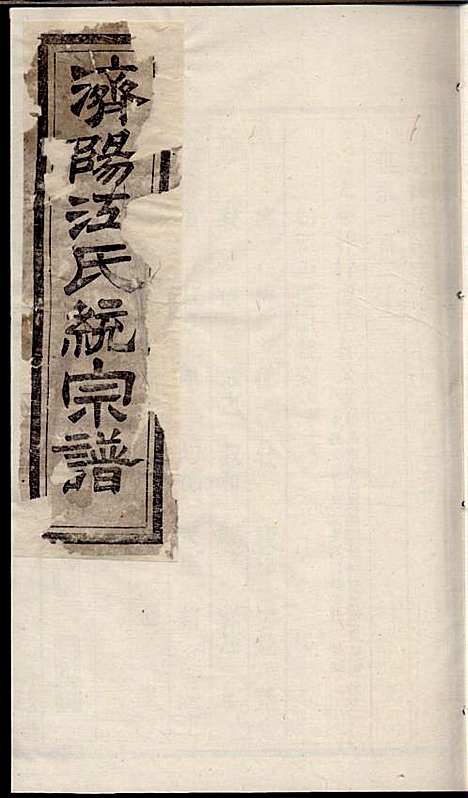 濟陽江氏統宗譜